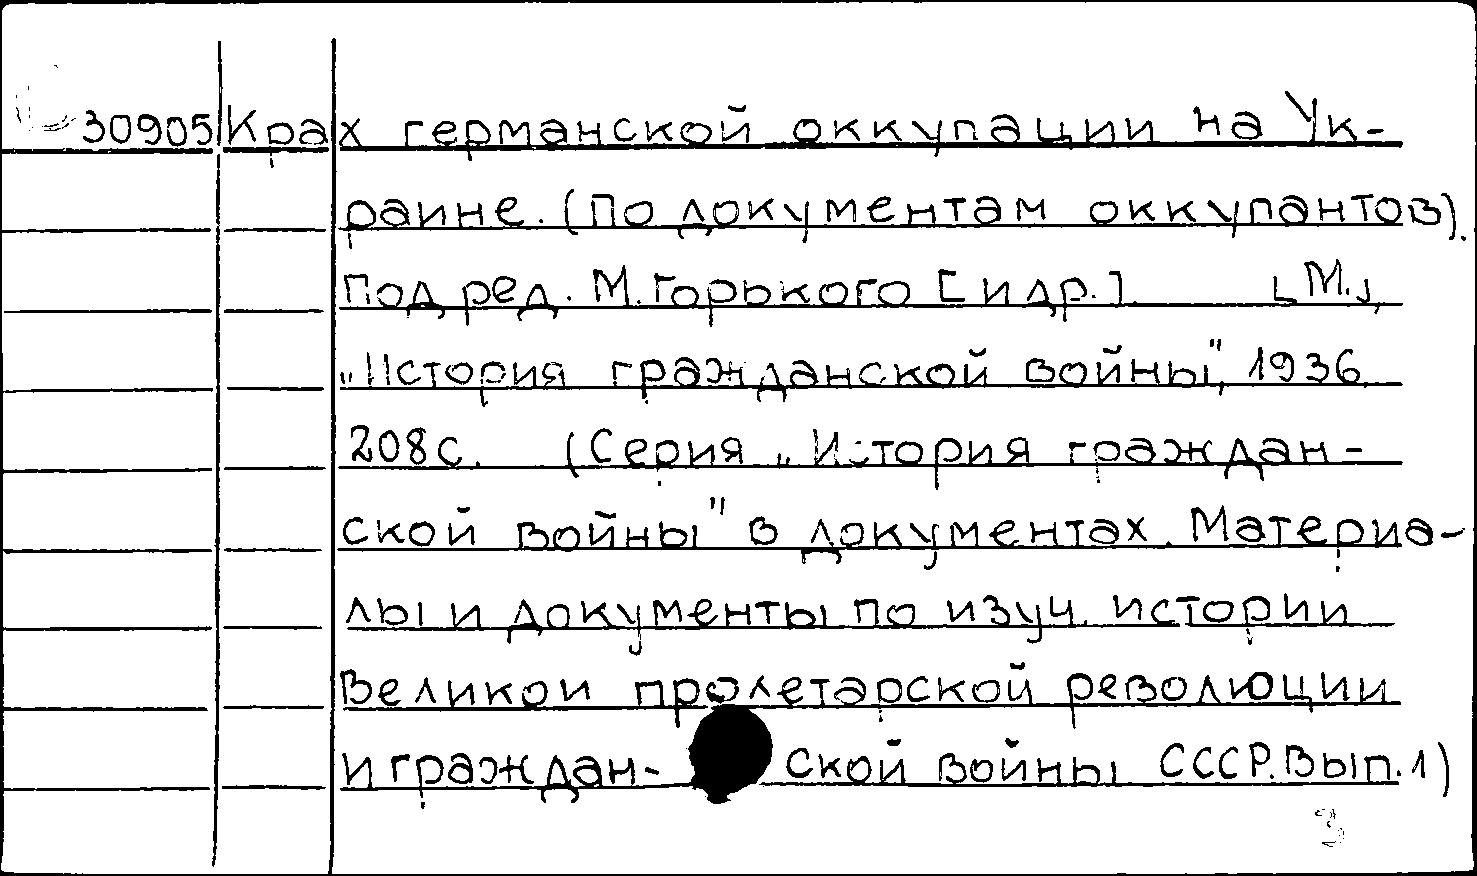 30905 Крах германской оккупации на Ук-
раине. (По документам оккупантов).
Под ред. М. Горького [и др.] [М.],
„История гражданской войны", 1936.
208 с. (Серия „История граждан-
ской войны" в документах. Материа-
лы и документы по изуч. истории
Великой пролетарской революции
и граждан- ской войны СССР. Вып. 1)
3